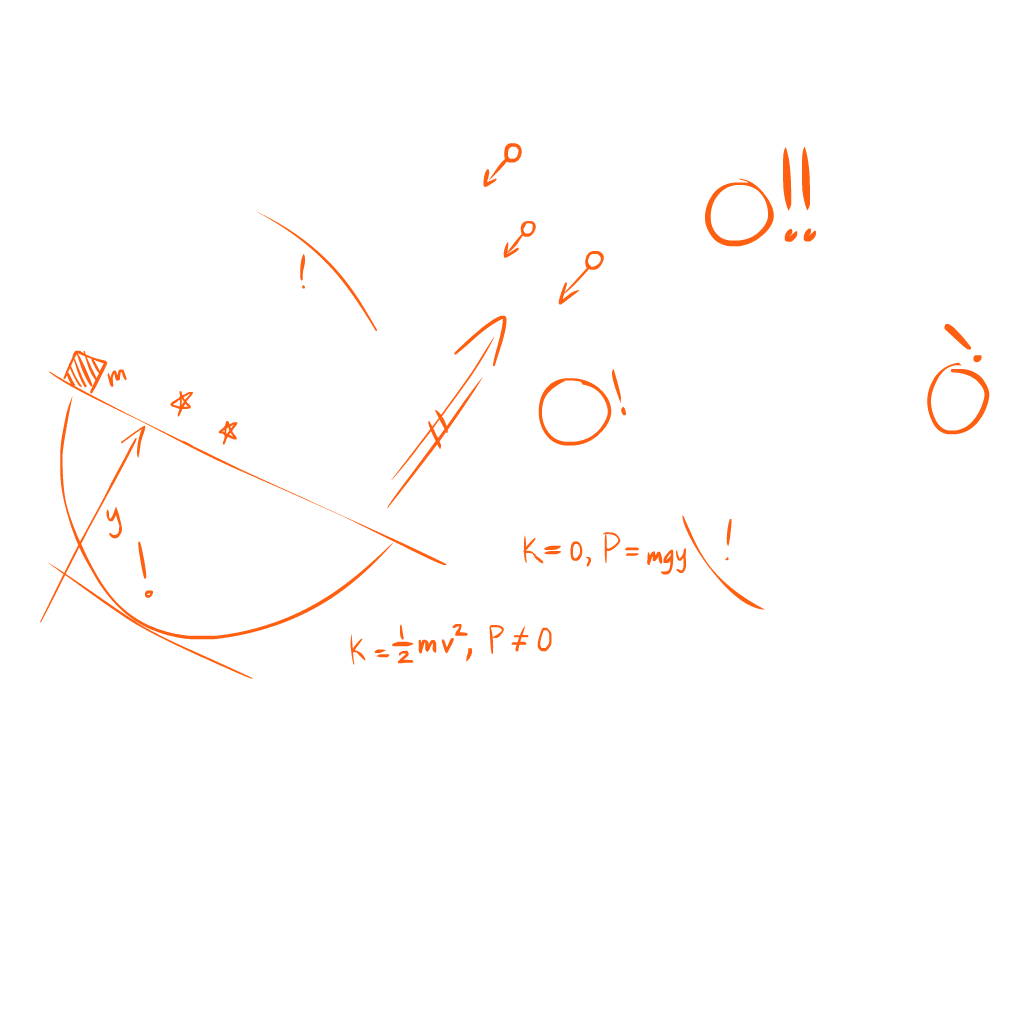 !
O!!
O!
O!
m
y
!
K = 0, P = mgy
!
K = ½mv², P ≠ 0